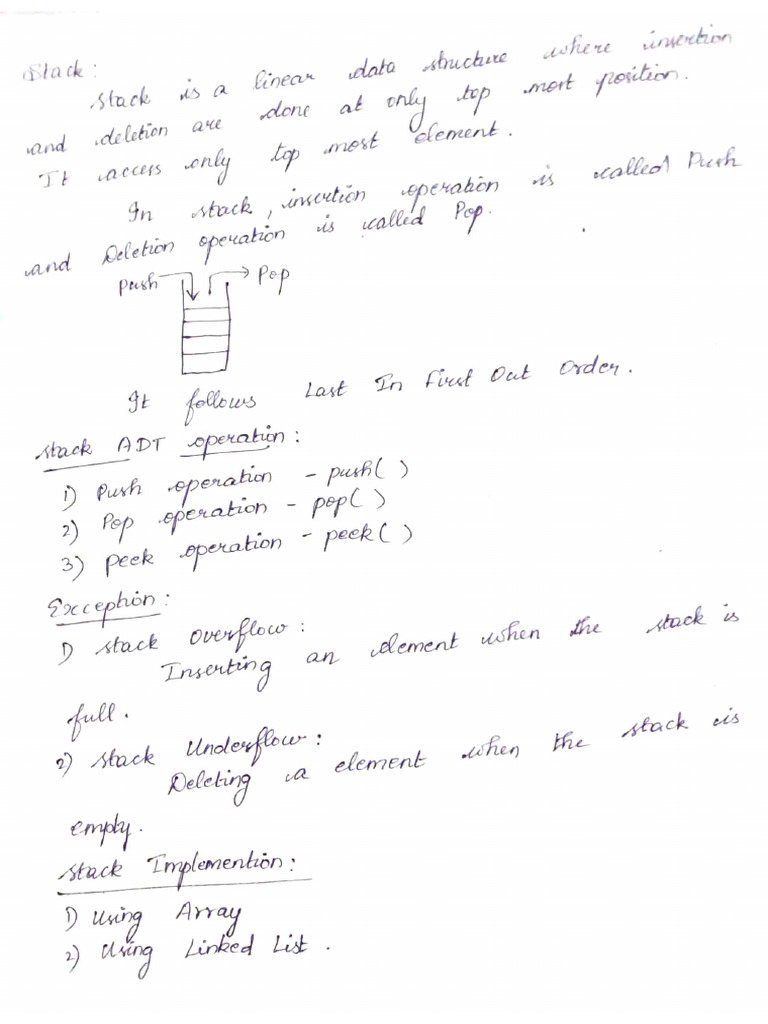 Stack:
Stack is a linear data structure where insertion
and deletion are done at only top most position.
It access only top most element.
In stack, insertion operation is called Push
and Deletion operation is called Pop.
Push Pop
It follows Last In First Out Order.
Stack ADT operation:
1) Push operation - push( )
2) Pop operation - pop( )
3) Peek operation - peek( )
Exception:
1) Stack Overflow:
Inserting an element when the stack is
full.
2) Stack Underflow:
Deleting a element when the stack is
empty.
Stack Implemention:
1) Using Array
2) Using Linked List.